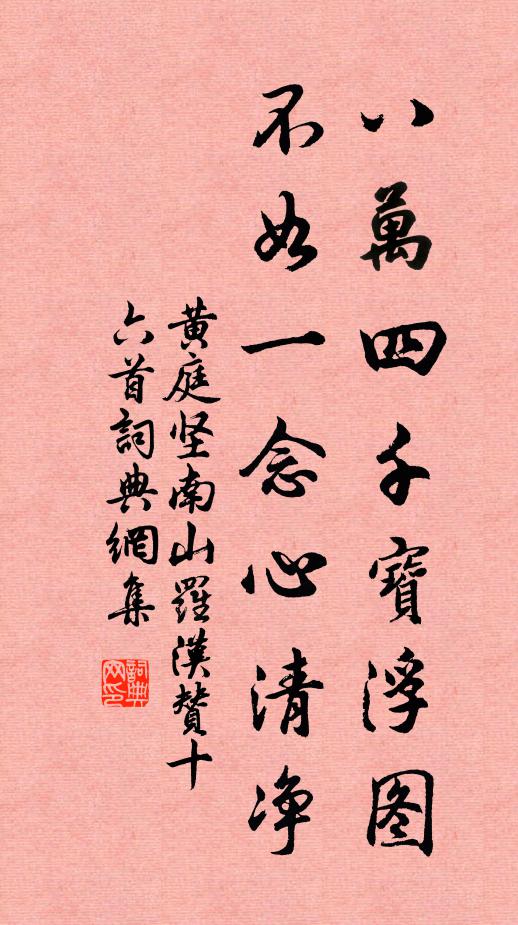 八萬四千寶浮图
不如一念心清净
黄庭坚南山羅漢贊十
六首詞典網集
詞典網印